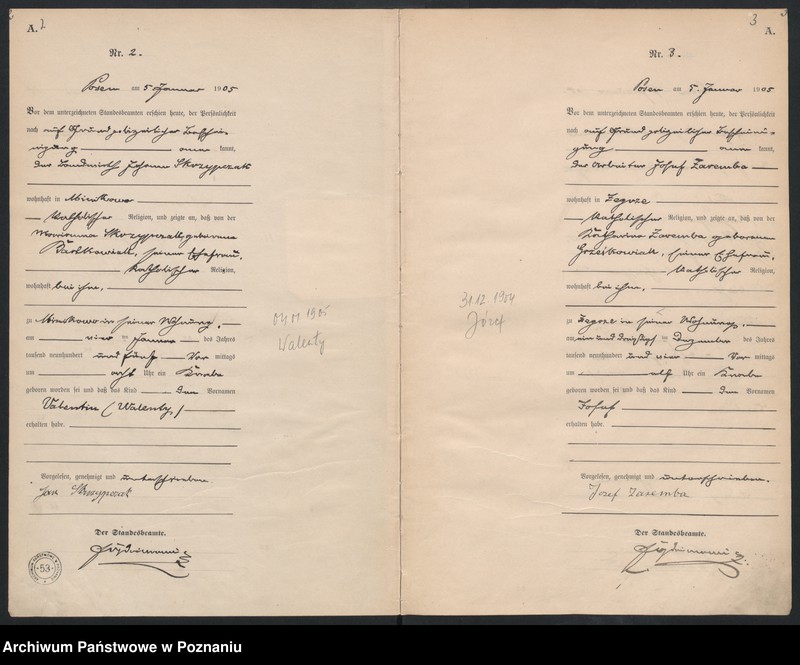 A. 2
Nr. 2.
Posen am 5 Januar 1905
Vor dem unterzeichneten Standesbeamten erschien heute, der Persönlichkeit
nach auf Grund polizeilicher Beschei-
nigung kannt,
der Landwirth Johann Skrzypczak
wohnhaft in Minikowo
katholischer Religion, und zeigte an, daß von der
Marianna Skrzypczak geborenen
seiner Ehefrau,
katholischer Religion,
wohnhaft bei ihm,
zu Minikowo in seiner Wohnung,
am vier ten Januar des Jahres
tausend neunhundert und fünf Vor mittags
um acht Uhr ein Knabe
geboren worden sei und daß das Kind den Vornamen
Valentin (Walenty)
erhalten habe.
Vorgelesen, genehmigt und unterschrieben
Jan Skrzypczak
Der Standesbeamte.
53
04 01 1905
Walenty
3
A.
Nr. 3.
Posen am 5. Januar 1905
Vor dem unterzeichneten Standesbeamten erschien heute, der Persönlichkeit
nach auf Grund polizeilicher Bescheini-
gung kannt,
der Arbeiter Josef Zaremba
wohnhaft in Zegrze
katholischer Religion, und zeigte an, daß von der
Katharina Zaremba geborenen
seiner Ehefrau,
katholischer Religion,
wohnhaft bei ihm,
zu Zegrze in seiner Wohnung,
am ein und dreißigsten Dezember des Jahres
tausend neunhundert und vier Vor mittags
um elf Uhr ein Knabe
geboren worden sei und daß das Kind den Vornamen
Josef
erhalten habe.
Vorgelesen, genehmigt und unterschrieben.
Josef Zaremba
Der Standesbeamte.
31.12.1904
Józef
Archiwum Państwowe w Poznaniu